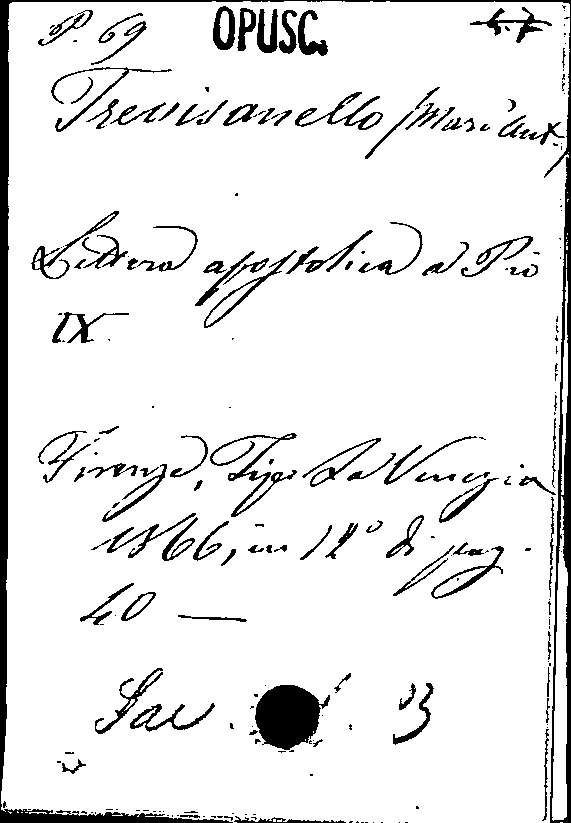 P. 69 OPUSC. 4.7
Trevisanello (Mari'Ant.)
Lettera apostolica a Pio
IX.
Firenze, Tipo La Venezia
1866, in 12º di pag.
40 —
Sac. . 33